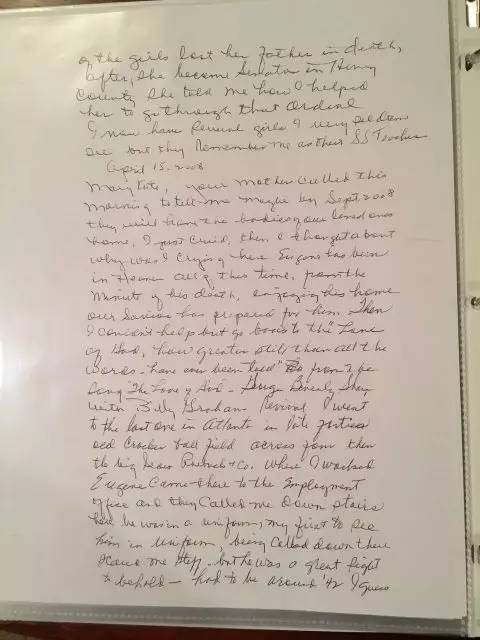 of the girls lost her Father in death,
after, she became Senator in Henry
County she told me how I helped
her to go through that ordeal
I now have several girls I very seldom
see but they Remember me as their SS Teacher
April 15, 2008
your mother called this
morning to tell me maybe by Sept 2008
they will have the bodies your loved ones
home, I just cried, then I thought about
why was I crying here Eugene has been
in Heaven all of this time, from the
minute of his death, enjoying his home
our Savior has prepared for him. Then
I couldn't help but go back to the "Love
of God, how greater still than all the
words have ever been told" from the
song "The Love of God - George Beverly Shea,
with Billy Graham Revival I went
to the last one in Atlanta in late forties
old Cracker ball field across from then
the big Sears Roebuck & Co. where I worked
Eugene came there to the Employment
office and they called me down stairs
here he was in a uniform, my first to see
him in uniform, being called down there
scared me stiff - but he was a great sight
to behold - had to be around '42 I guess